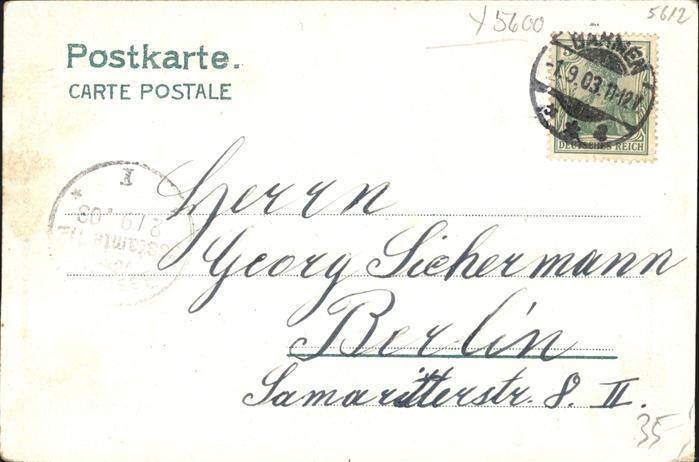 5612
Y5600
Postkarte.
CARTE POSTALE
BARMEN
-1.9.03.11-12V.
DEUTSCHES REICH
I
2/9.03
Herrn
Georg Sichermann
Berlin
Samaritterstr. 8. II.
35,